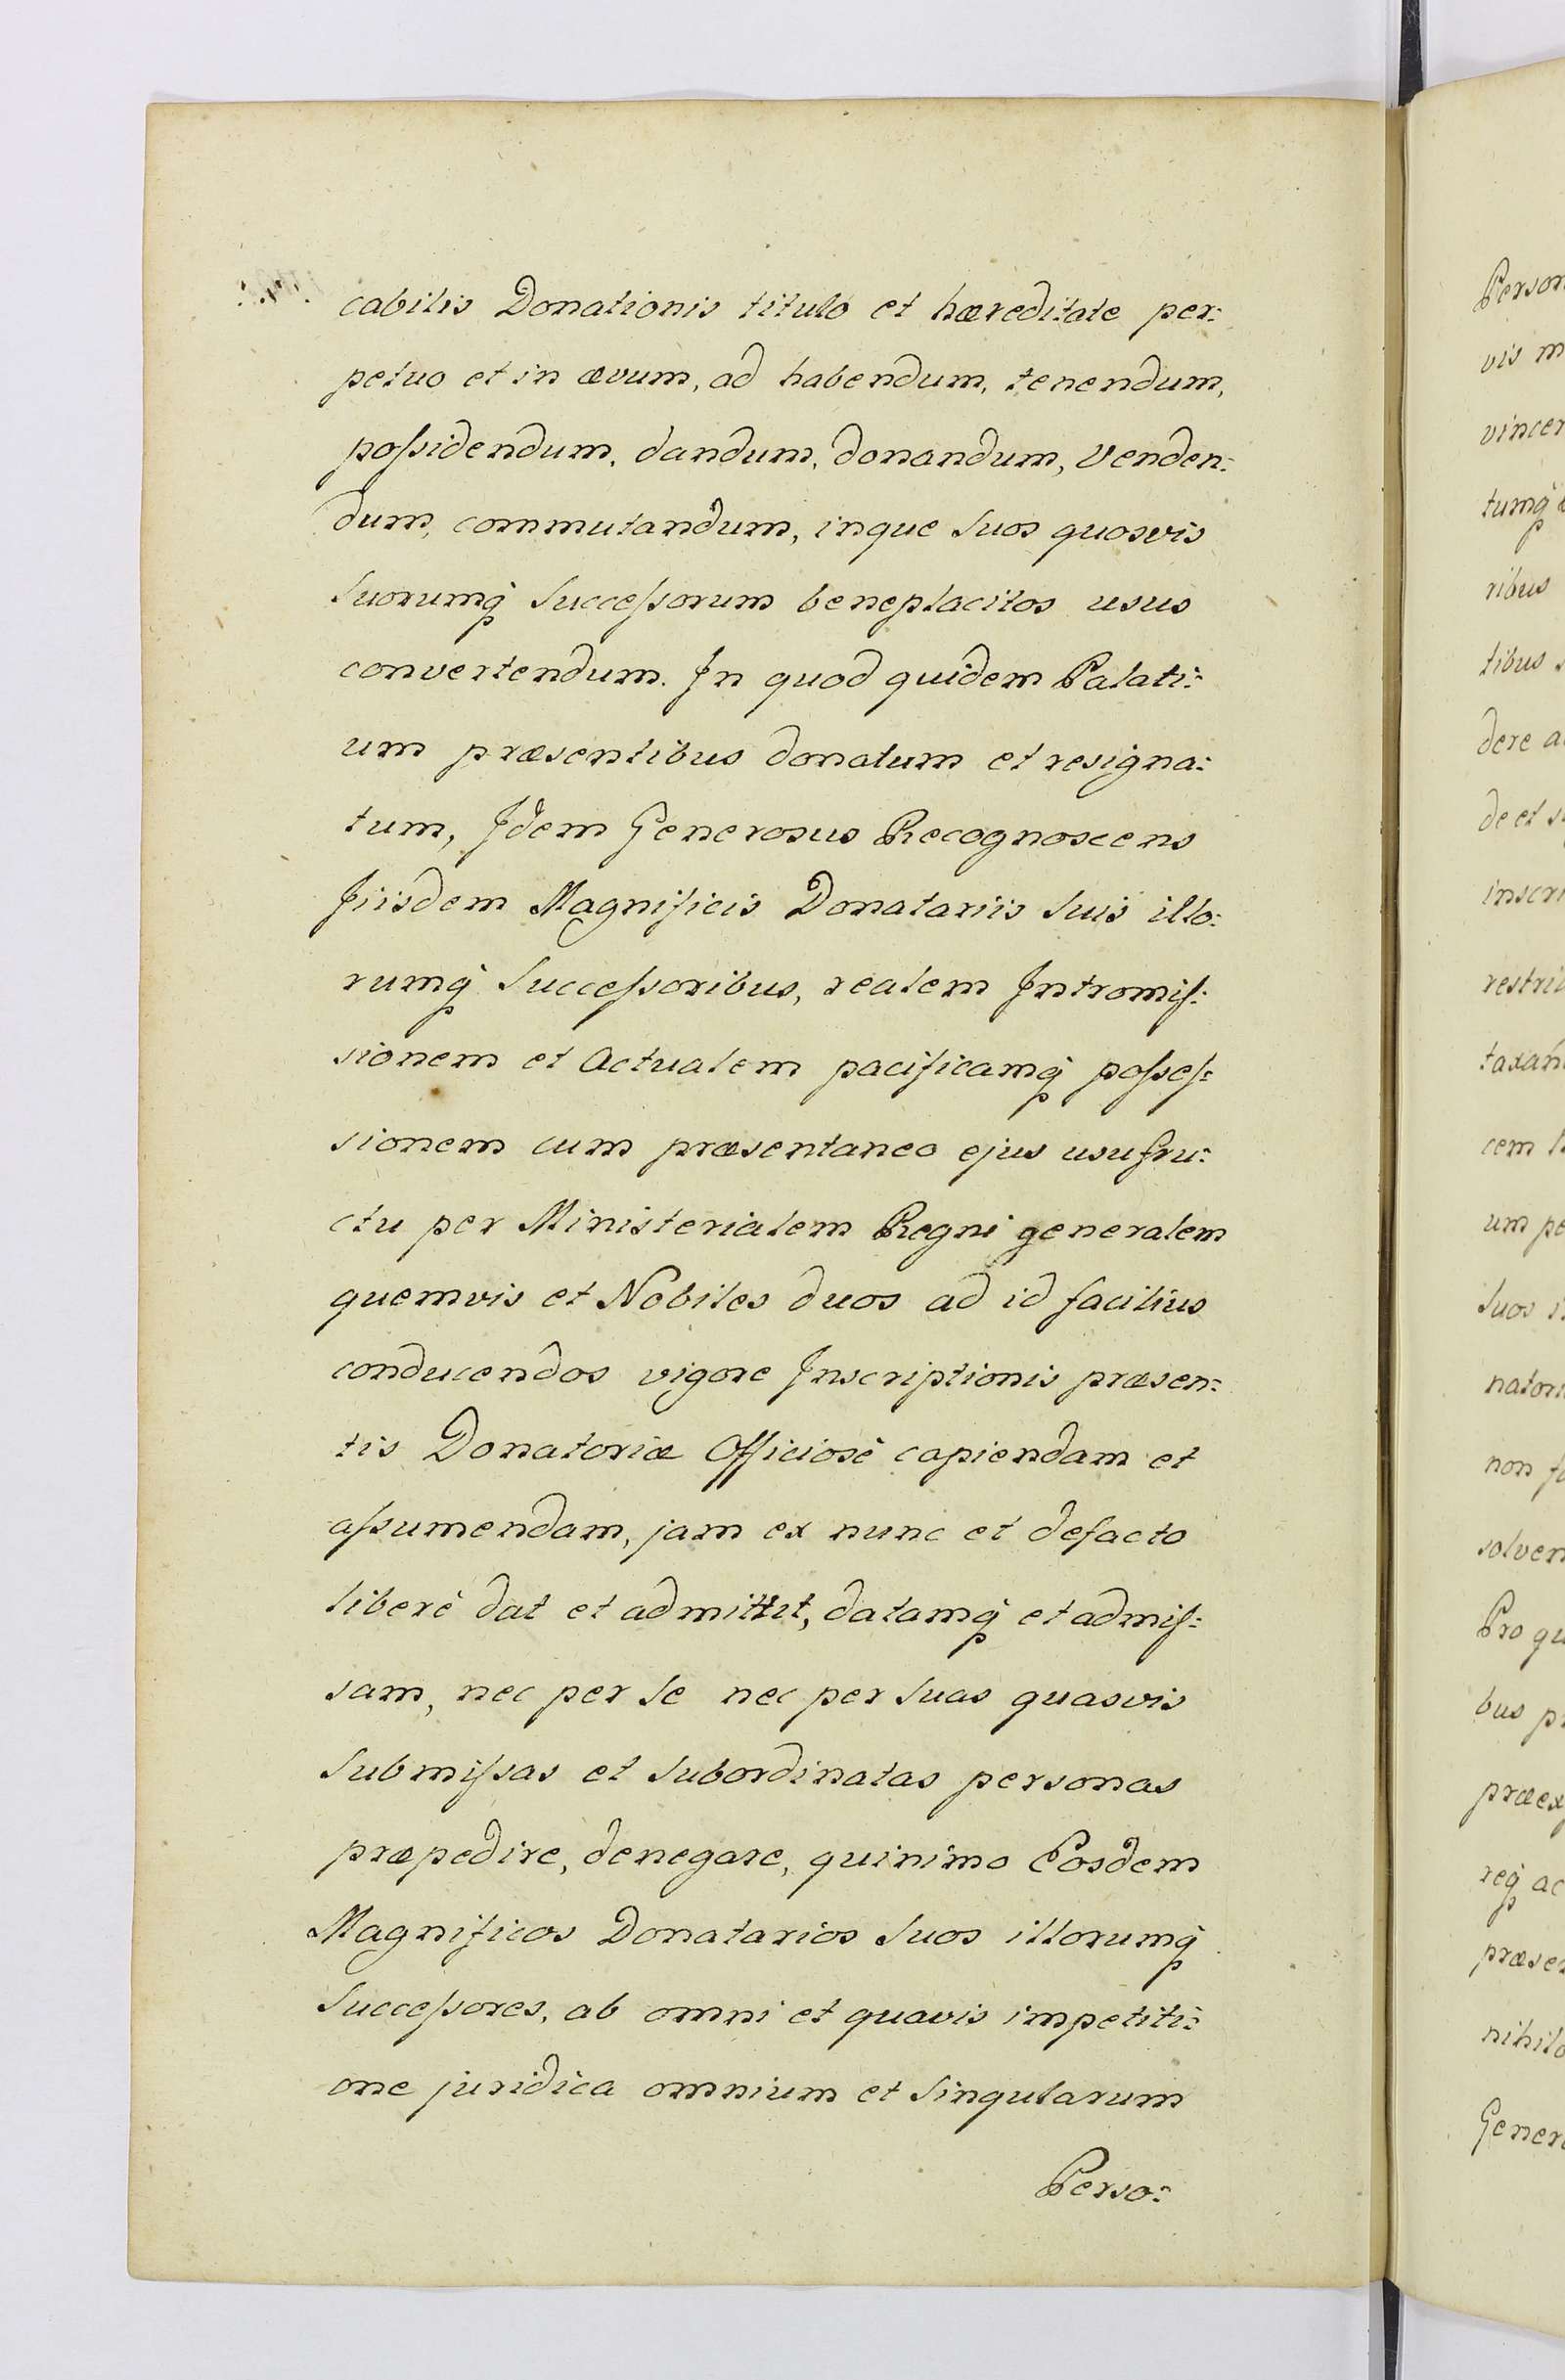 cabilis Donationis titulo et hæreditate per:
petuo et in ævum, ad habendum, tenendum,
poſsidendum, dandum, donandum, venden:
dum, commutandum, inque suos quosvis
suorumq̀ succeſsorum beneplacitos usus
convertendum. In quod quidem Palati:
um præsentibus donatum et resigna:
tum, Idem Generosus Recognoscens
Iiisdem Magnificis Donatariis suis illo:
rumq̀ Succeſsoribus, realem Intromiſ:
sionem et Actualem pacificamq̀ poſseſ:
sionem cum præsentaneo ejus usufru:
ctu per Ministerialem Regni generalem
quemvis et Nobiles duos ad id facilius
conducendos vigore Inscriptionis præsen:
tis Donatoriæ Officiosè capiendam et
aſsumendam, jam ex nunc et defacto
liberè dat et admittit, datamq̀ et admiſ:
sam, nec per se nec per suas quasvis
submiſsas et subordinatas personas
præpedire, denegare, quinimo Eosdem
Magnificos Donatarios suos illorumq̀
Succeſsores, ab omni et quavis impetiti:
one juridica omnium et singularum
Perso:
Person
vis m
vincen
tumq̀
ribus
tibus
dere a
de et s
inscri
restri
taxan
cem
um pe
suos i
nator
non f
solven
Pro qu
bus p
præex
req̀ ac
præsen
nihilo
Gener